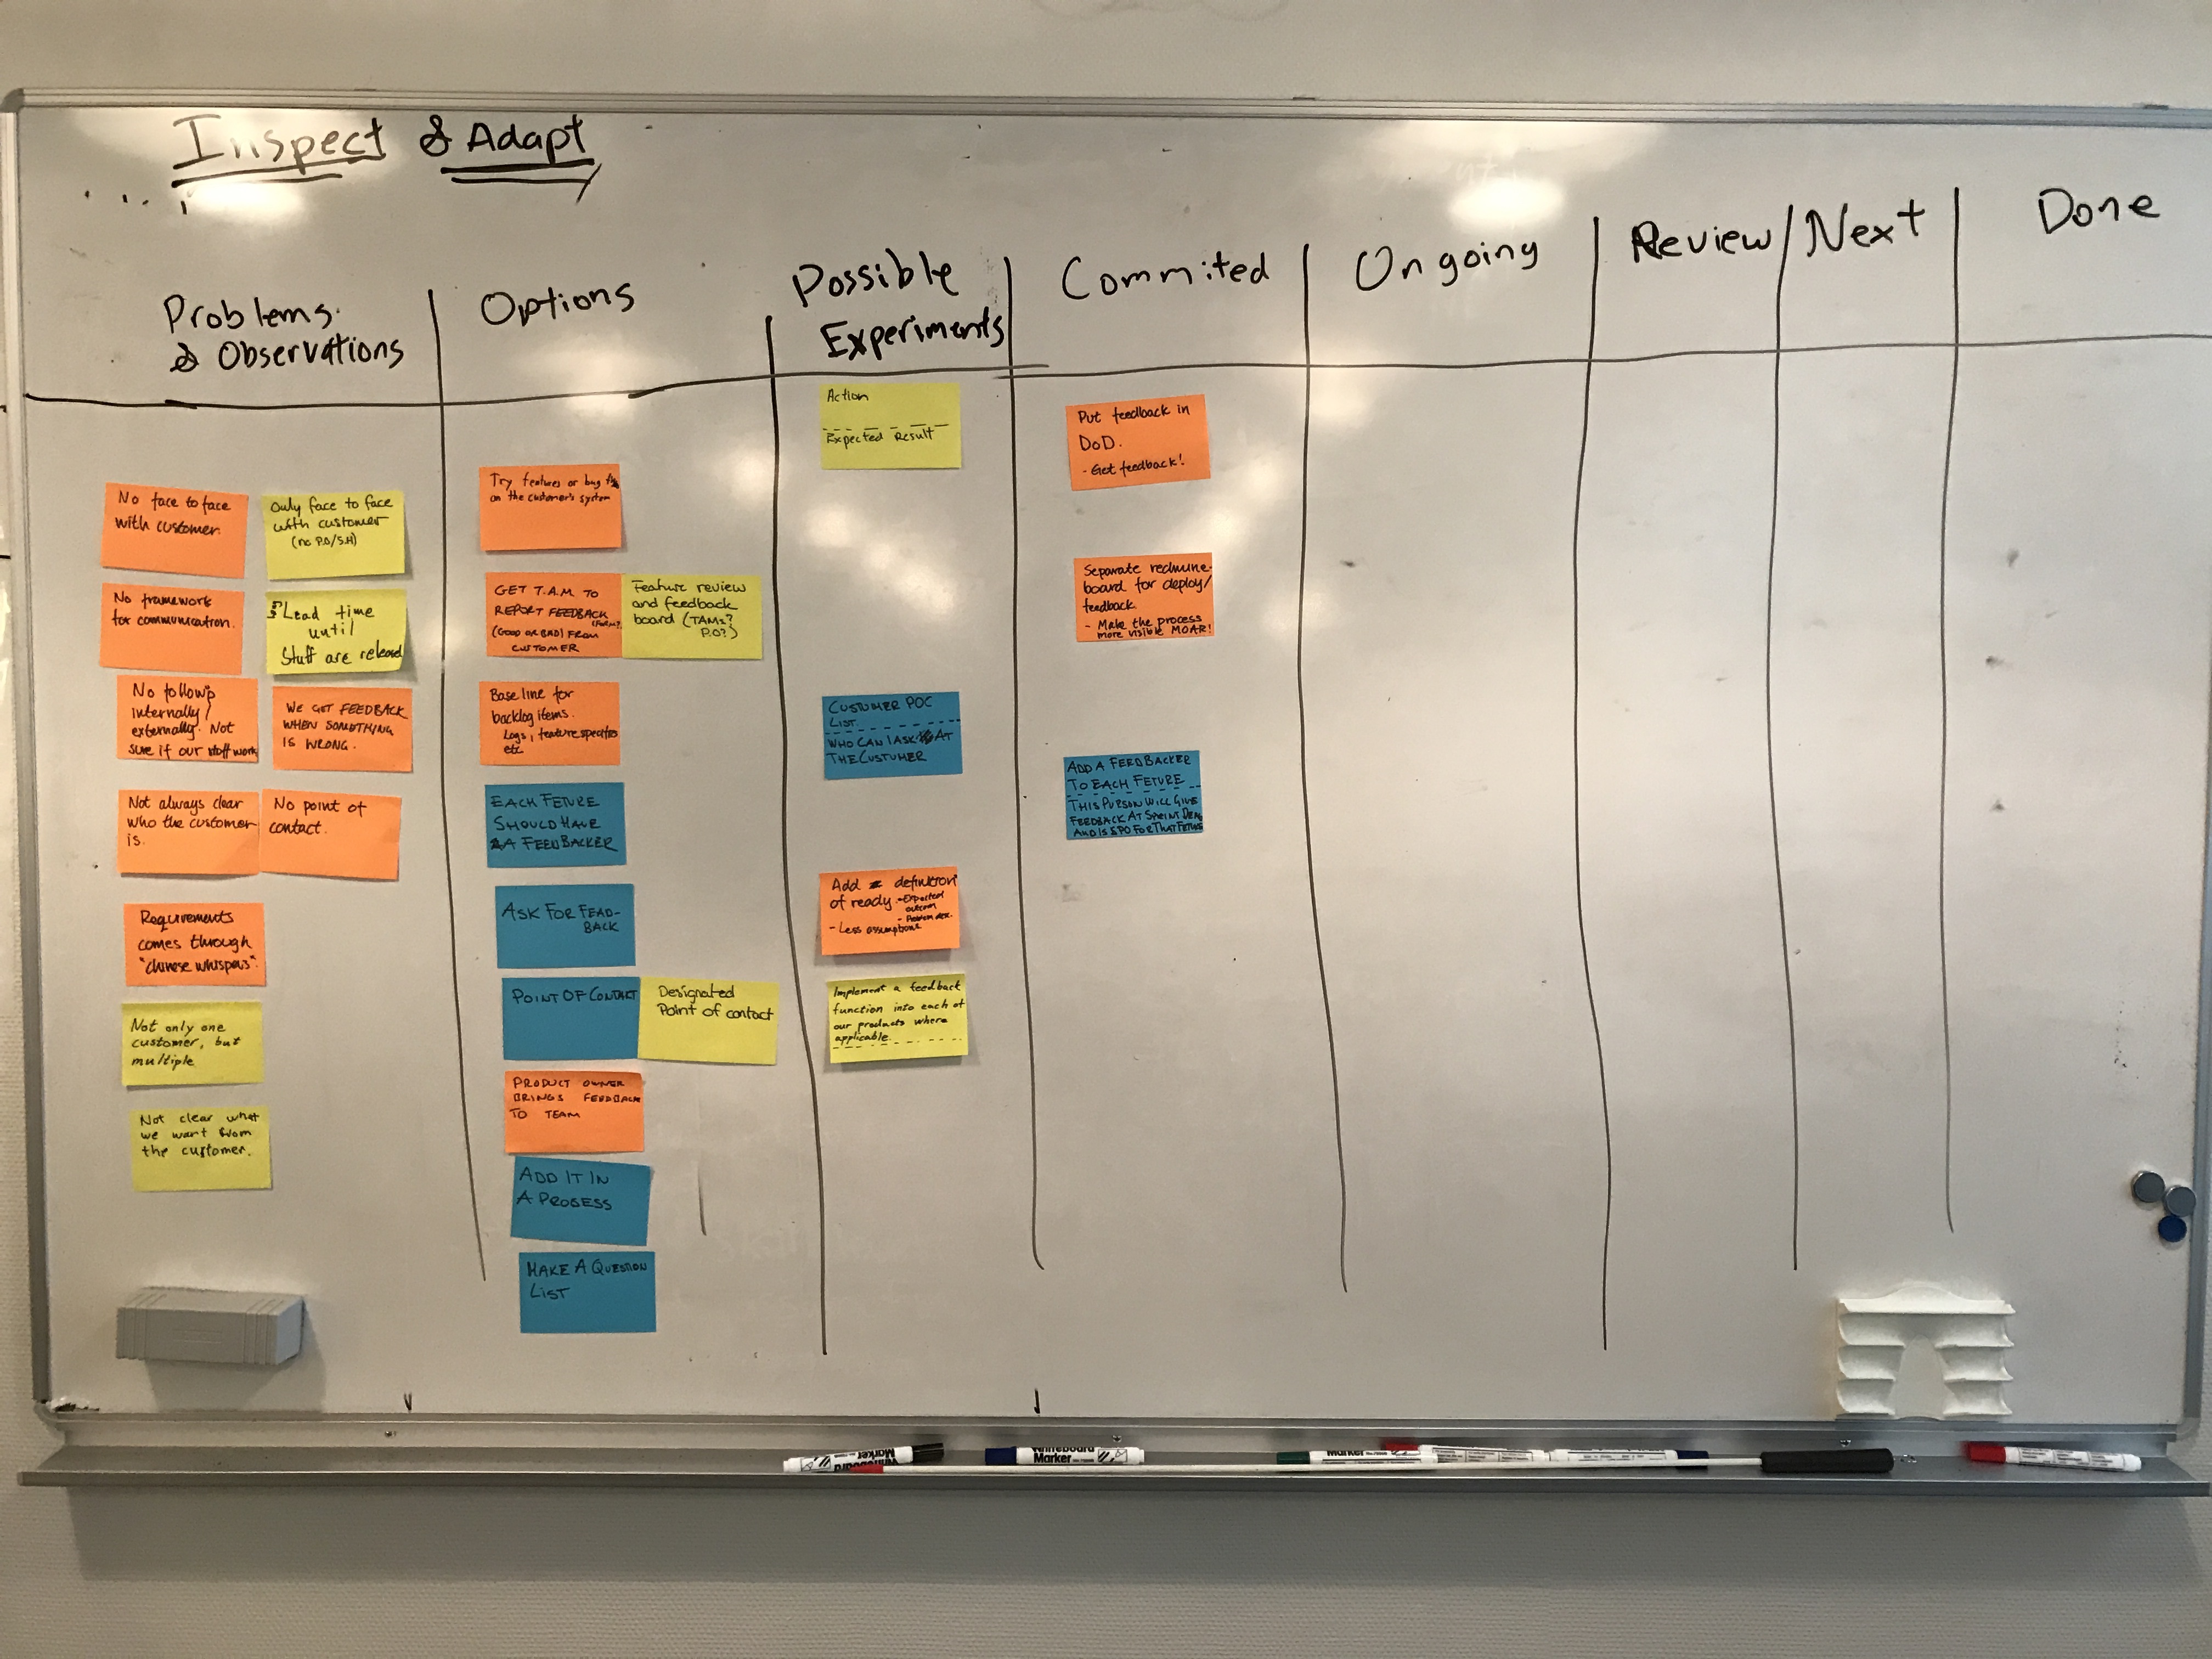 Inspect & Adapt
Problems
& Observations
Options
Possible
Experiments
Commited
Ongoing
Review/Next
Done
No face to face
with customer.
Only face to face
with customer
(no P.O/S.H)
No framework
for communication.
Lead time
until
Stuff are released
No follow
internally/
externally. Not
sure if our stuff work
WE GET FEEDBACK
WHEN SOMETHING
IS WRONG.
Not always clear
who the customer
is.
No point of
contact.
Requirements
comes through
"chinese whispers".
Not only one
customer, but
multiple
Not clear what
we want from
the customer.
Try features or bug
on the customer's system
GET T.A.M. TO
REPORT FEEDBACK
(FORM?)
(GOOD OR BAD) FROM
CUSTOMER
Feature review
and feedback
board (TAMs?
P.O?)
Baseline for
backlog items.
Logs, feature specifics
etc
EACH FETURE
SHOULD HAVE
A FEEDBACKER
ASK FOR FEAD-
BACK
POINT OF CONTACT
Designated
Point of contact
PRODUCT OWNER
BRINGS FEEDBACK
TO TEAM
ADD IT IN
A PROSESS
MAKE A QUESTION
LIST
Action
Expected Result
CUSTUMER POC
LIST
WHO CAN I ASK AT
THE CUSTUMER
Add definition
of ready
- Expected
outcom
- Problem
- Less assumptions
Implement a feedback
function into each of
our products where
applicable.
Put feedback in
DoD.
- Get feedback!
Separate redmine
board for deploy/
feedback.
- Make the process
more visible MOAR!
ADD A FEEDBACKER
TO EACH FETURE
THIS PURSON WILL GIVE
FEEDBACK AT SPRINT DEMO
AND IS SPO FOR THAT FETURE
Marker
Whiteboard
Whiteboard
Marker
Marker